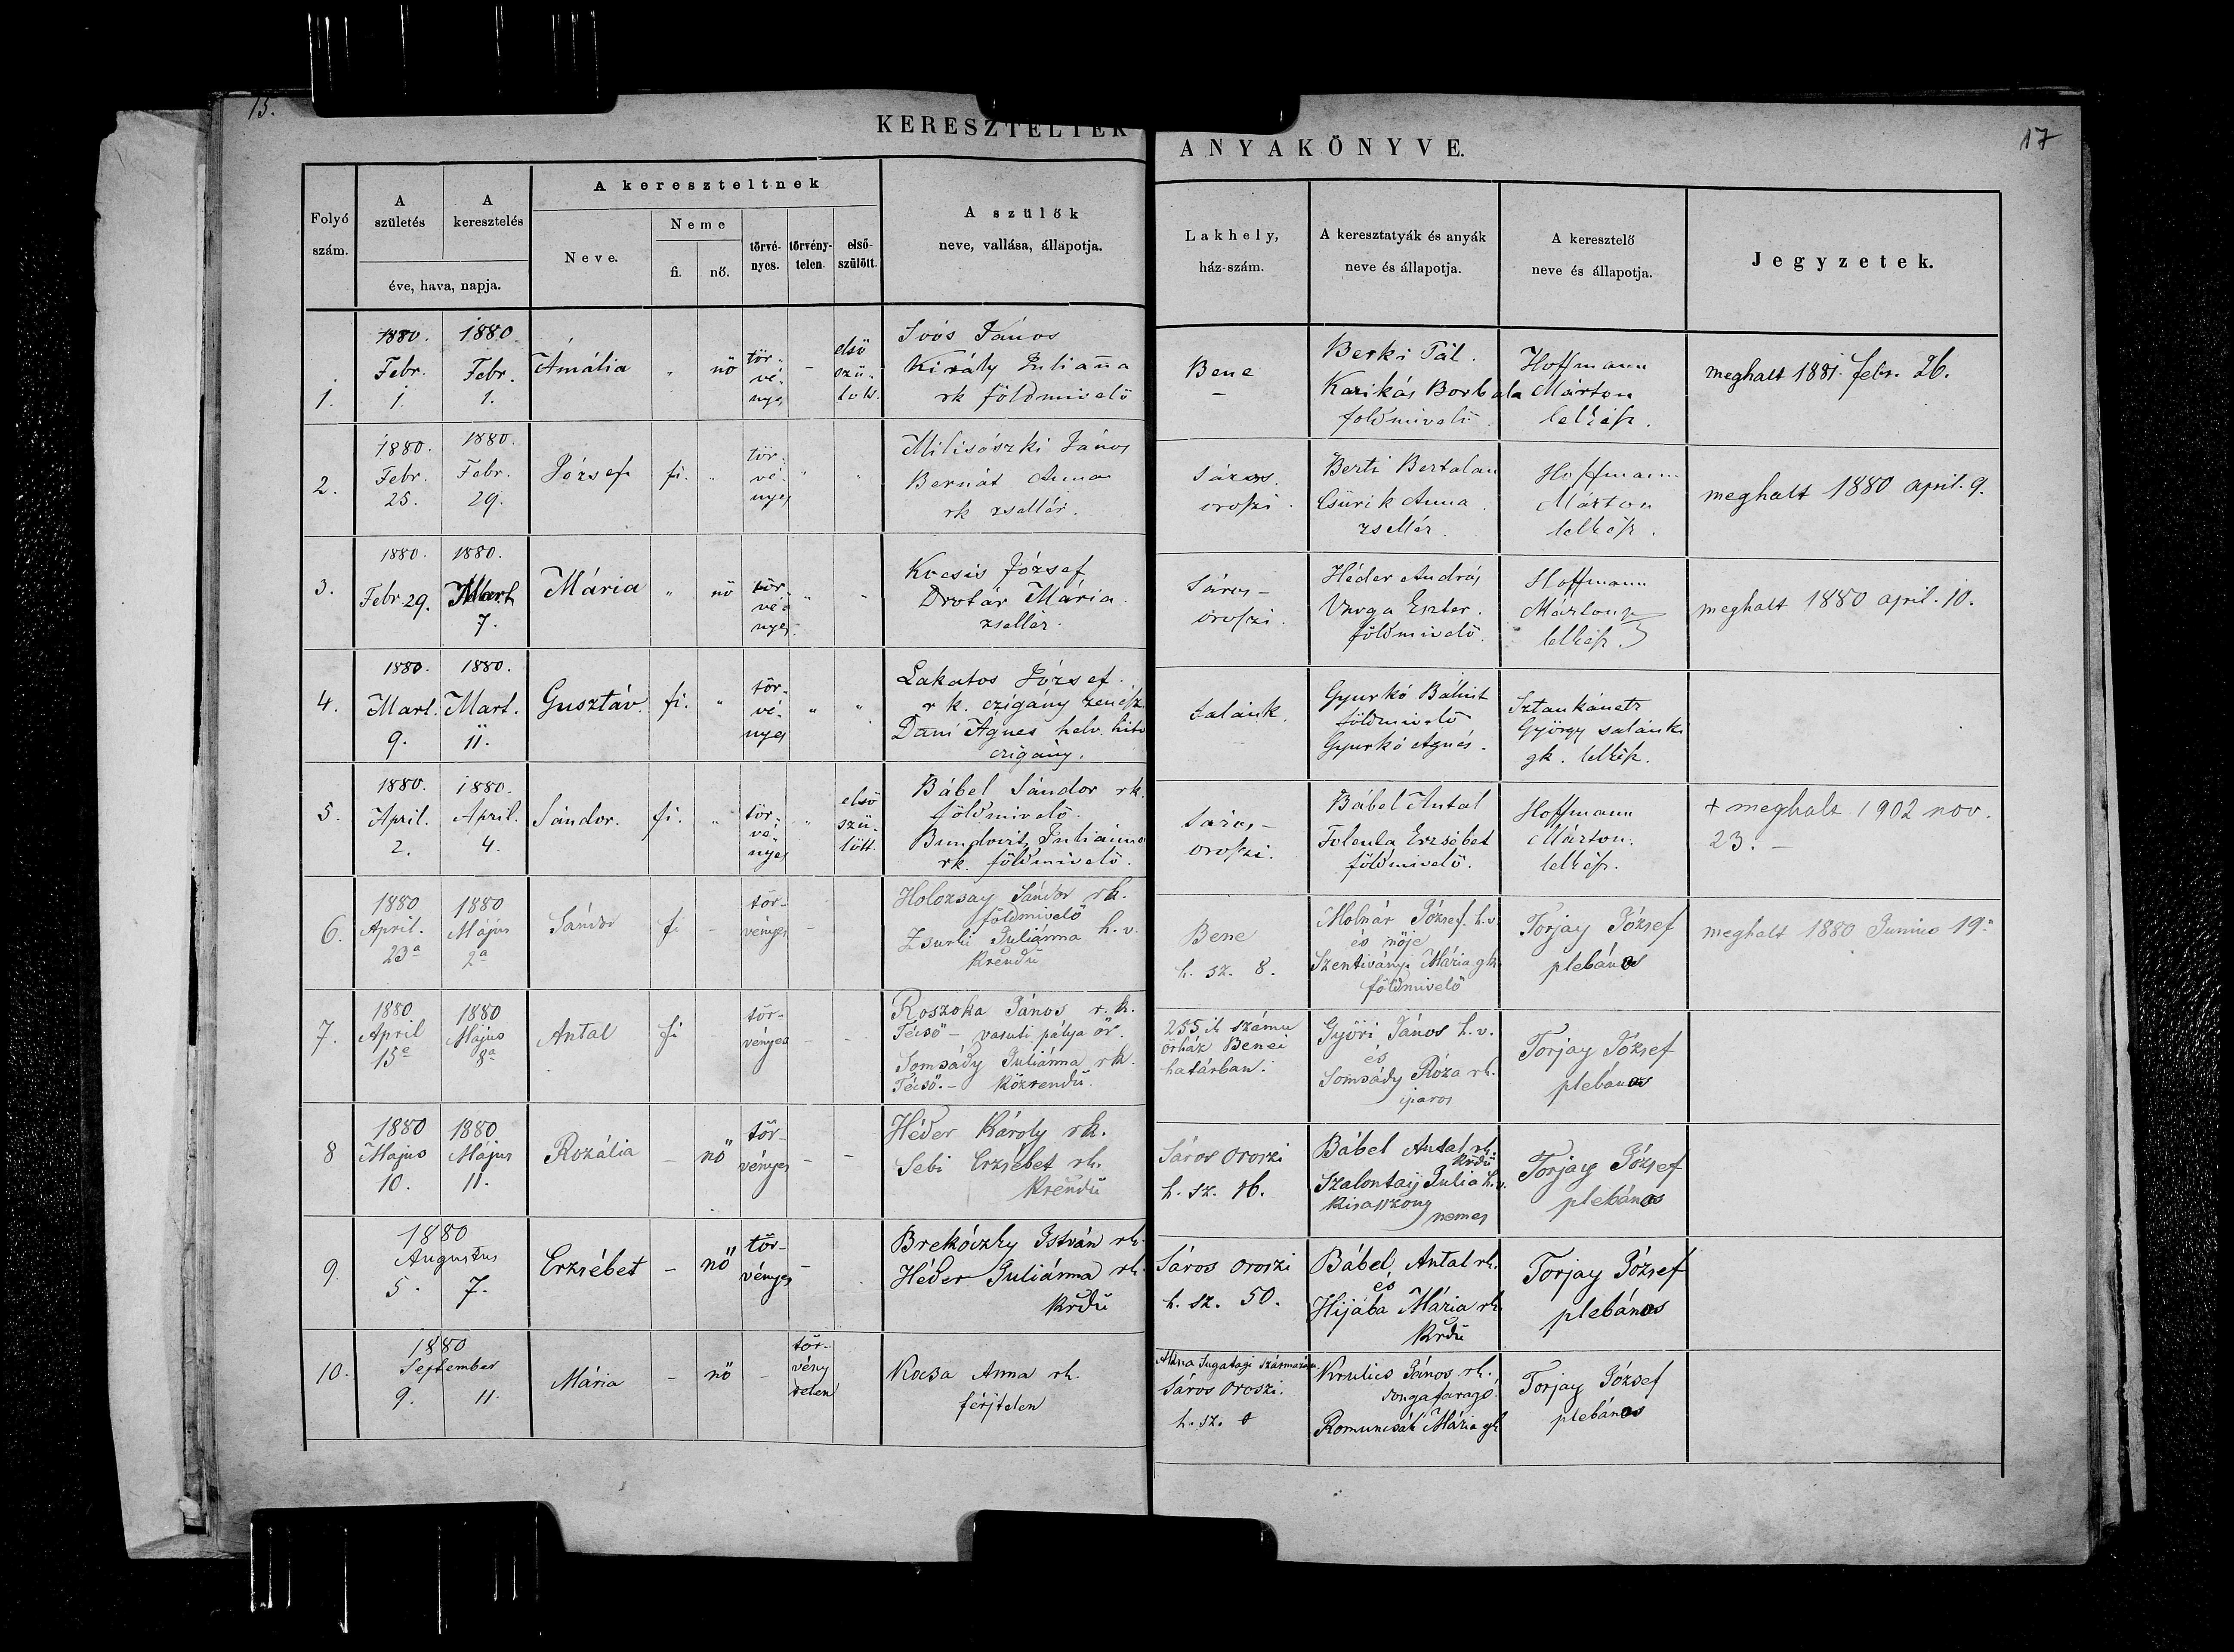 15.
17
KERESZTELTEK ANYAKÖNYVE.
Folyó szám.
A születés
A keresztelés
éve, hava, napja.
A kereszteltnek
Neve.
Neme
fi.
nő.
törvé-nyes.
törvény-telen.
első-szülött.
A szülők
neve, vallása, állapotja.
Lakhely,
ház-szám.
A keresztatyák és anyák
neve és állapotja.
A keresztelő
neve és állapotja.
Jegyzetek.
1.
1880.
Febr.
1.
1880.
Febr.
1.
Amália
"
nö
tör-
vé-
nyes
-
első
szü-
lött.
Soós János
Király Julianna
rk földmivelö
Bene
-
Berki Pál.
Karikás Borbala
földmivelö
Hoffmann
Márton
lelkész.
meghalt 1881. febr. 26.
2.
1880.
Febr.
25.
1880.
Febr.
29.
József
fi.
"
tör-
vé-
nyes
"
"
János
Bernát Anna
rk zsellér.
Sáros
oroszi.
Berti Bertalan
Csürik Anna
zsellér.
Hoffmann
Márton
lelkész.
meghalt 1880 april. 9.
3.
1880.
Febr 29.
1880.
Mart
7.
Mária
"
nö
tör-
vé-
nyes.
"
"
Kocsis József
Drotár Mária
zseller.
Sáros-
oroszi.
Héder András
Varga Eszter.
földmivelö.
Hoffmann
Márton
lelkész.
meghalt 1880 april. 10.
4.
1880.
Mart.
9.
1880.
Mart.
11.
Gusztáv.
fi.
"
tör-
vé-
nyes
"
"
Lakatos József.
rk. czigány zenész
Dani Ágnes helv. hitv
czigány.
Salánk.
Gyurkó Bálint
földmivelö
Gyurkó Agnés.
Sztankánets
György salánki
gk. lelkész.
5.
1880.
April.
2.
1880.
April.
4.
Sándor.
fi.
"
tör-
vé-
nyes
"
első
szü-
lött.
Bábel Sándor rk.
földmivelö.
Julianna
rk. földmivelö.
Sáros-
oroszi.
Bábel Antal
Erzsébet
földmivelö.
Hoffmann
Márton.
lelkész.
+ meghalt 1902 nov.
23. -
6.
1880
April.
23a
1880
Május
2a
Sándor
fi
-
tör-
vényes
-
Holozsay Sándor rk.
földmivelö
Zsurki Juliánna h.v.
Krendü
Bene
h. sz. 8.
Molnár József. h.v.
és nöje
Szentiványi Mária gk.
földmivelö
Torjay József
plebános
meghalt 1880 Junius 19.
7.
1880
April
15e
1880
Május
8a
Antal
fi
tör-
vényes
-
-
Roszoha János r.k.
Técsö - vasuti pálya ör.
Somsády Juliánna rk.
Técsö. - Közrendü.
255ik számu
örház Benei
határban.
Györi János h.v.
és
Somsády Róza rk.
iparos
Torjay József
plebános
8
1880
Május
10.
1880
Május
11.
Rozália
-
nö
tör-
vényes
-
-
Héder Károly rk.
Sebi Erzsébet rk.
Krendü
Sáros Oroszi
h. sz. 16.
Bábel Antal rk.
Krdü
Szalontay Julia h.v.
Kisasszony
nemes
Torjay József
plebános
9.
1880
Augustus
5. 7.
Erzsébet
-
nö
tör-
vényes
-
Brekóczky István rk.
Héder Juliánna rk.
Krdü
Sáros Oroszi
h. sz. 50.
Bábel Antal rk.
és
Hijába Mária rk.
Krdü
Torjay József
plebános
10.
1880
September
9. 11.
Mária
-
nö
-
tör-
vény
telen
Kocsa Anna rk.
férjtelen
Akna Sugatagi származásu.
Sáros Oroszi.
h. sz. 0
Krulics János rk.
dongafaragó.
Romuncsák Mária gk
Torjay József
plebános